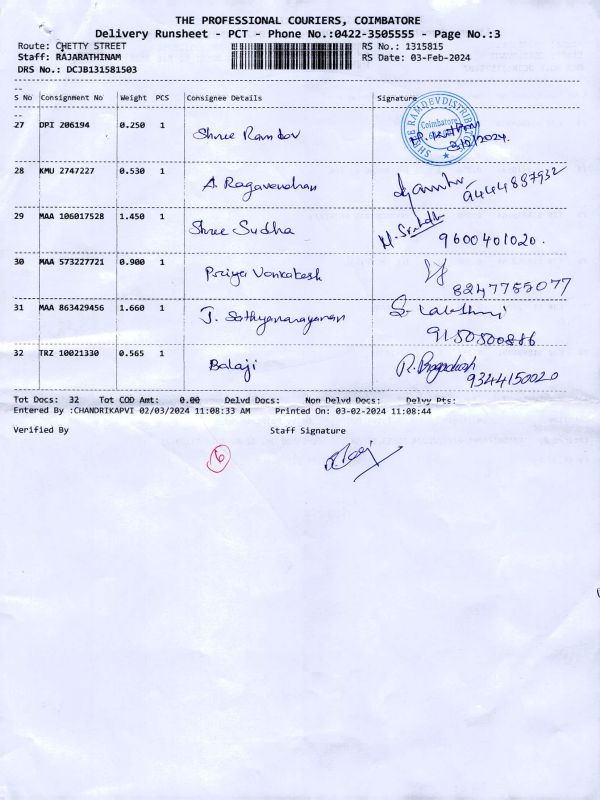 THE PROFESSIONAL COURIERS, COIMBATORE
Delivery Runsheet - PCT - Phone No.:0422-3505555 - Page No.:3
Route: CHETTY STREET RS No.: 1315815
Staff: RAJARATHINAM RS Date: 03-Feb-2024
DRS No.: DCJB131581503
S No Consignment No Weight PCS Consignee Details Signature
27 DPI 206194 0.250 1 Shree Ramdev
SHREE RAMDEV DISTRIB
Coimbatore
3/2/2024
28 KMU 2747227 0.530 1 A. Ragavendran
9444887932
29 MAA 106017528 1.450 1 Shree Sudha
9600401020.
30 MAA 573227721 0.900 1 Priya Venkatesh
8247755077
31 MAA 863429456 1.660 1 J. Sathyanarayanan S. Lakshmi
9150500886
32 TRZ 10021330 0.565 1 Balaji R.
9344150020
Tot Docs: 32 Tot COD Amt: 0.00 Delvd Docs: Non Delvd Docs: Delvy Pts:
Entered By :CHANDRIKAPVI 02/03/2024 11:08:33 AM Printed On: 03-02-2024 11:08:44
Verified By Staff Signature
6